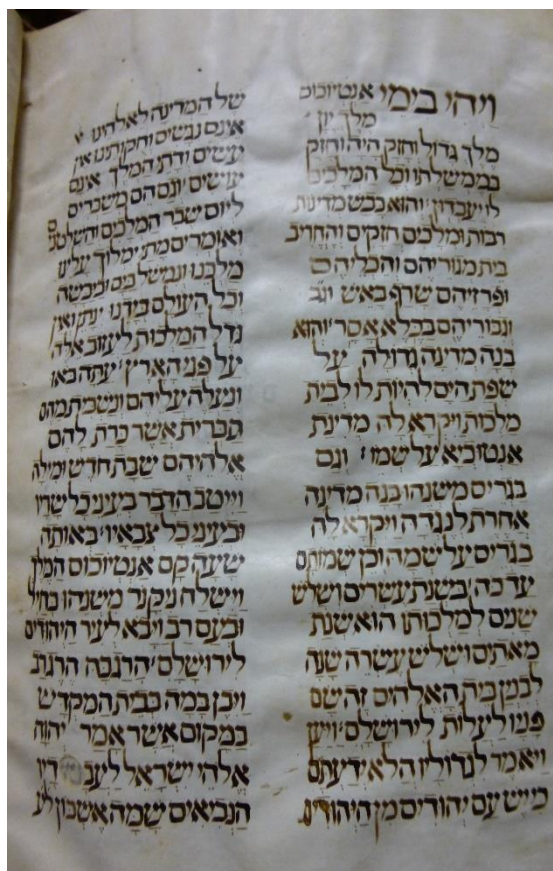 ויהי בימי אנטיוכוס
מלך יון
מלך גדול וחזק היה וחזק
בממשלתו וכל המלכים
לו יעבדון והוא כבש מדינות
רבות ומלכים חזקים והחריב
בית מגוריהם והכליהם
ופרזיהם שרף באש וגב
וגבוריהם בכלא אסר והוא
בנה מדינה גדולה על
שפת הים להיות לו לבית
מלכות ויקרא לה מדינת
אנטוכיא על שמו וגם
בגריס משנהו בנה מדינה
אחרת לנגדה ויקרא לה
בגריס על שמה וכן שמותם
עד כה בשנת עשרים ושלש
שנים למלכותו הוא שנת
מאתים ושליש עשרה שנה
לבנין בית האלהים זה שם
פניו ליעלות לירושלם ויען
ויאמר לגדוליו הלא ידעתם
כי יש עם יהודים מן היהודים
של המדינה לאלהינו
אינם נגשים וחקותינו אין
עשים ודתי המלך אינם
עושים וגם הם משברים
ליום שבר המלכים והשלטנים
ואומרים מתי ימלוך עלינו
מלכנו ונמשל בים וביבשה
וכל העולם בידנו ינתן ואין
גדל המלכות ליעזוב אלה
על פני הארץ עתה באו
ונעלה עליהם ונשבית מהם
הברית אשר כרת להם
אלהיהם שבת חדש ומילה
וייטב הדבר בעיני כל שריו
ובעיני כל צבאיו באותה
שעה קם אנטיוכוס המלך
וישלח ניקנר משנהו בחיל
ובעם רב ויבא לעיר היהודים
לירושלם הרגבה הרג רב
ויבן במה בבית המקדש
במקום אשר אמר יהוה
אלהי ישראל לעבדיו
הנביאים שמה אשכון לע